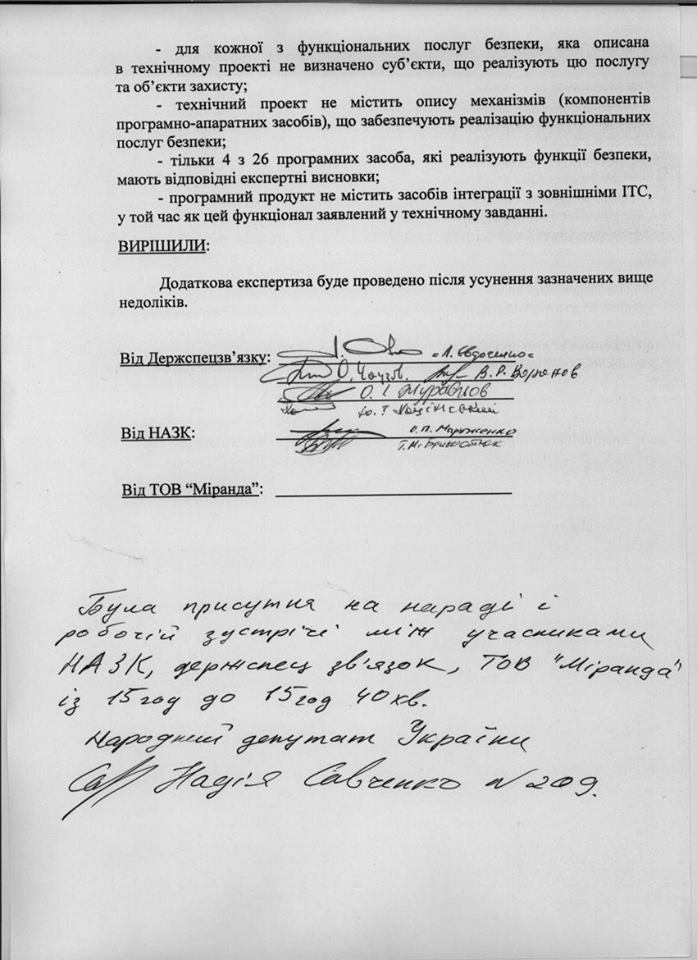 - для кожної з функціональних послуг безпеки, яка описана
в технічному проекті не визначено суб’єкти, що реалізують цю послугу
та об’єкти захисту;
- технічний проект не містить опису механізмів (компонентів
програмно-апаратних засобів), що забезпечують реалізацію функціональних
послуг безпеки;
- тільки 4 з 26 програмних засоба, які реалізують функції безпеки,
мають відповідні експертні висновки;
- програмний продукт не містить засобів інтеграції з зовнішніми ІТС,
у той час як цей функціонал заявлений у технічному завданні.
ВИРІШИЛИ:
Додаткова експертиза буде проведено після усунення зазначених вище
недоліків.
Від Держспецзв’язку:
О. В. Р.
О. І.
Від НАЗК: О. П.
Т.М.
Від ТОВ “Міранда”:
Була присутня на нараді і
робочій зустрічі між учасниками
НАЗК, держспец зв'язок, ТОВ "Міранда"
із 15 год до 15 год 40 хв.
Народний депутат України
Надія Савченко N 209.